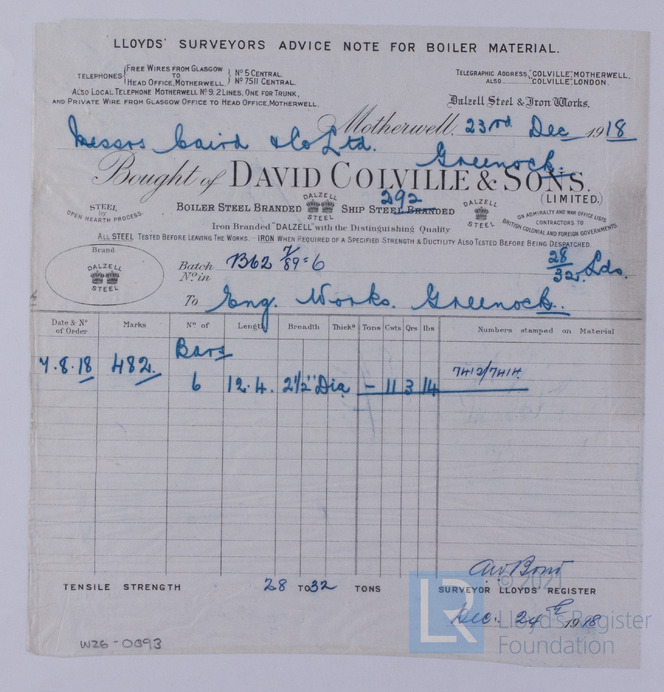 LLOYDS' SURVEYORS ADVICE NOTE FOR BOILER MATERIAL.
TELEPHONES { FREE WIRES FROM GLASGOW TO HEAD OFFICE, MOTHERWELL. } Nº 5 CENTRAL. Nº 7511 CENTRAL.
ALSO LOCAL TELEPHONE MOTHERWELL Nº 9. 2 LINES, ONE FOR TRUNK,
AND PRIVATE WIRE FROM GLASGOW OFFICE TO HEAD OFFICE, MOTHERWELL.
TELEGRAPHIC ADDRESS, "COLVILLE", MOTHERWELL.
ALSO "COLVILLE", LONDON.
Dalzell Steel & Iron Works.
Motherwell, 23rd Dec 1918
Messrs Caird & Co Ltd.
Greenock.
Bought of DAVID COLVILLE & SONS.
(LIMITED.)
292
STEEL by OPEN HEARTH PROCESS.
BOILER STEEL BRANDED DALZELL STEEL SHIP STEEL BRANDED DALZELL STEEL
ON ADMIRALTY AND WAR OFFICE LISTS
CONTRACTORS TO
BRITISH COLONIAL AND FOREIGN GOVERNMENTS
Iron Branded "DALZELL" with the Distinguishing Quality
ALL STEEL TESTED BEFORE LEAVING THE WORKS. IRON WHEN REQUIRED OF A SPECIFIED STRENGTH & DUCTILITY ALSO TESTED BEFORE BEING DESPATCHED.
Brand
DALZELL STEEL
Batch Nº in B62 7/89=6
28/32 Lds.
To Eng. Works. Greenock.
Date & Nº of Order Marks Nº of Length Breadth Thickˢ Tons Cwts Qrs lbs Numbers stamped on Material
Bars
7.8.18 482.
6 12.4. 2½" Dia - 11 3 14 7412/7414.
TENSILE STRENGTH 28 TO 32 TONS
A W Bond
SURVEYOR LLOYDS' REGISTER
Dec. 24th 1918
W26-0093
© 2021
LR
Lloyd's Register
Foundation